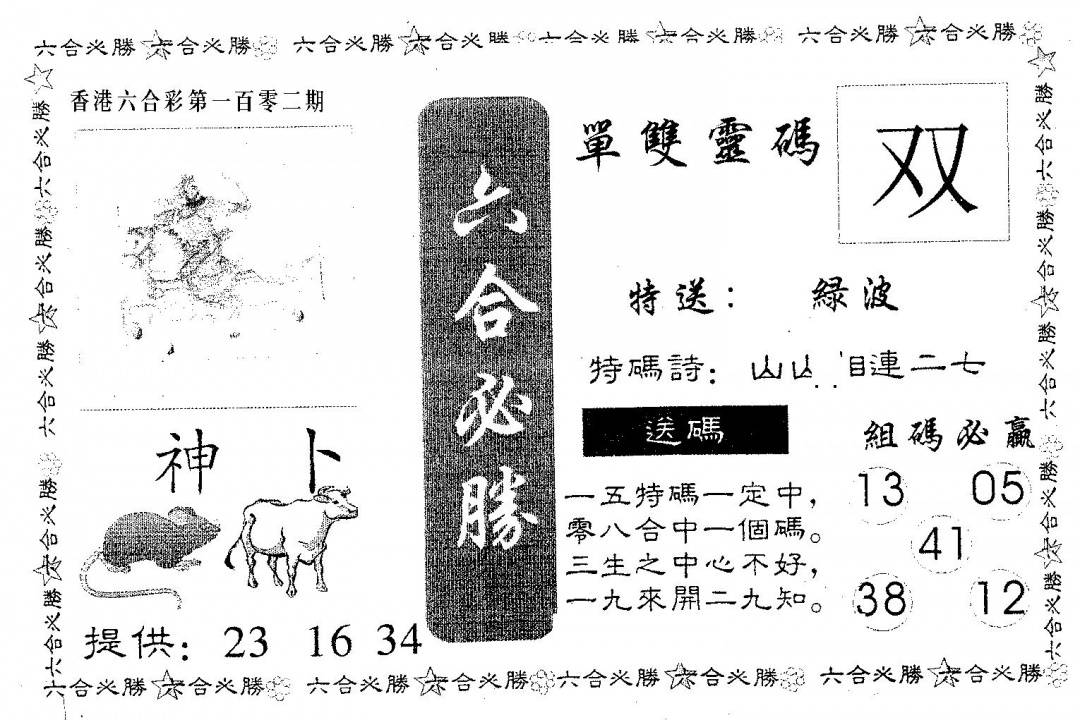 六合必勝 六合必勝 六合必勝 六合必勝 六合必勝 六合必勝 六合必勝 六合必勝
香港六合彩第一百零二期
神卜
提供: 23 16 34
六合必勝
單雙靈碼
双
特送: 綠波
特碼詩: 山山 相連二七
送碼
一五特碼一定中,
零八合中一個碼。
三生之中心不好,
一九來開二九知。
組碼必贏
13 05
41
38 12
六合必勝 六合必勝 六合必勝 六合必勝 六合必勝 六合必勝 六合必勝 六合必勝
六合必勝 六合必勝 六合必勝 六合必勝 六合必勝
六合必勝 六合必勝 六合必勝 六合必勝 六合必勝